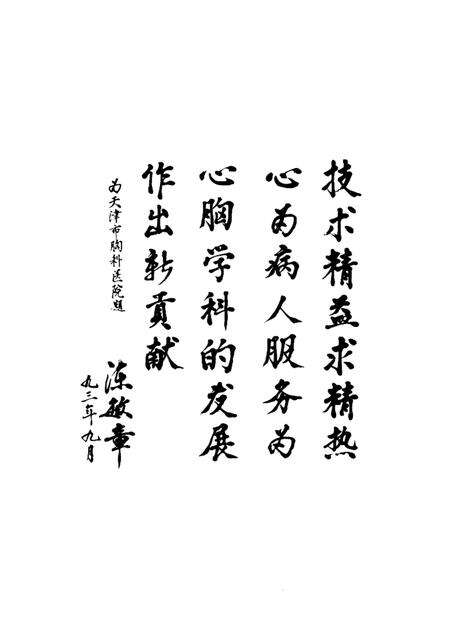 技术精益求精热
心为病人服务为
心胸学科的发展
作出新贡献
为天津市胸科医院题
陈敏章
九三年九月